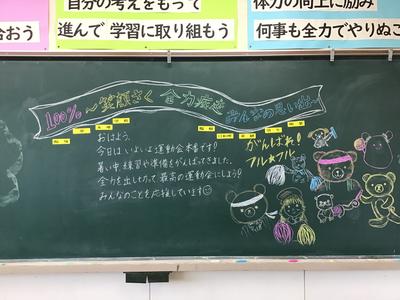 自分の考えをもって
進んで 学習に取り組もう
合おう
体力の向上に励み
何事も全力でやりぬこ
100% ～笑顔さく 全力疾走 みんなの思い出～
おはよう。
今日はいよいよ運動会本番です!
暑い中、練習や準備をがんばってきました。
全力を出しきって最高の運動会にしよう!
みんなのことを応援しています
がんばれ!
フレ★フレ